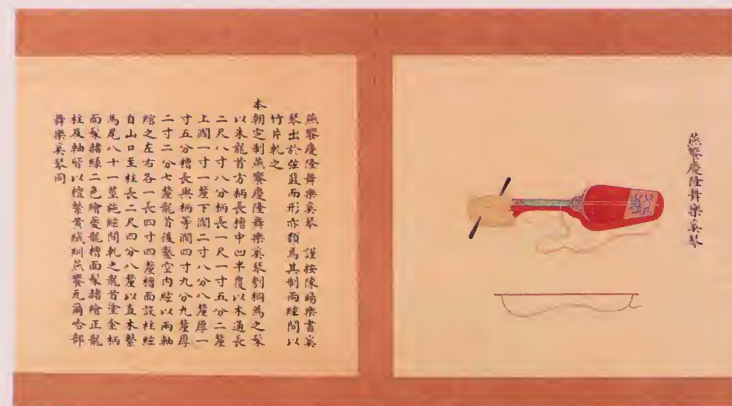 燕饗慶隆舞樂奚琴
燕饗慶隆舞樂奚琴 謹按陳暘樂書奚
琴出於弦鼗而形亦類焉其制兩絃間以
竹片軋之
本朝定制燕饗慶隆舞樂奚琴刳桐為之髹
以朱龍首方柄長槽中凹半覆以木通長
二尺八寸八分柄長一尺一寸五分二釐
上濶一寸一釐下濶二寸八分八釐厚一
寸五分槽長與柄等濶四寸九分九釐厚
二寸二分七釐龍首後鑿空內絃以兩軸
綰之左右各一長四寸四釐槽面設柱絃
自山口至柱長二尺四分八釐以直木繫
馬尾八十一莖施絃間軋之龍首塗金柄
面髹赭綠二色繪夔龍槽面髹赭繪正龍
柱及軸皆以檀繫黃絨紃燕饗瓦爾喀部
舞樂奚琴同